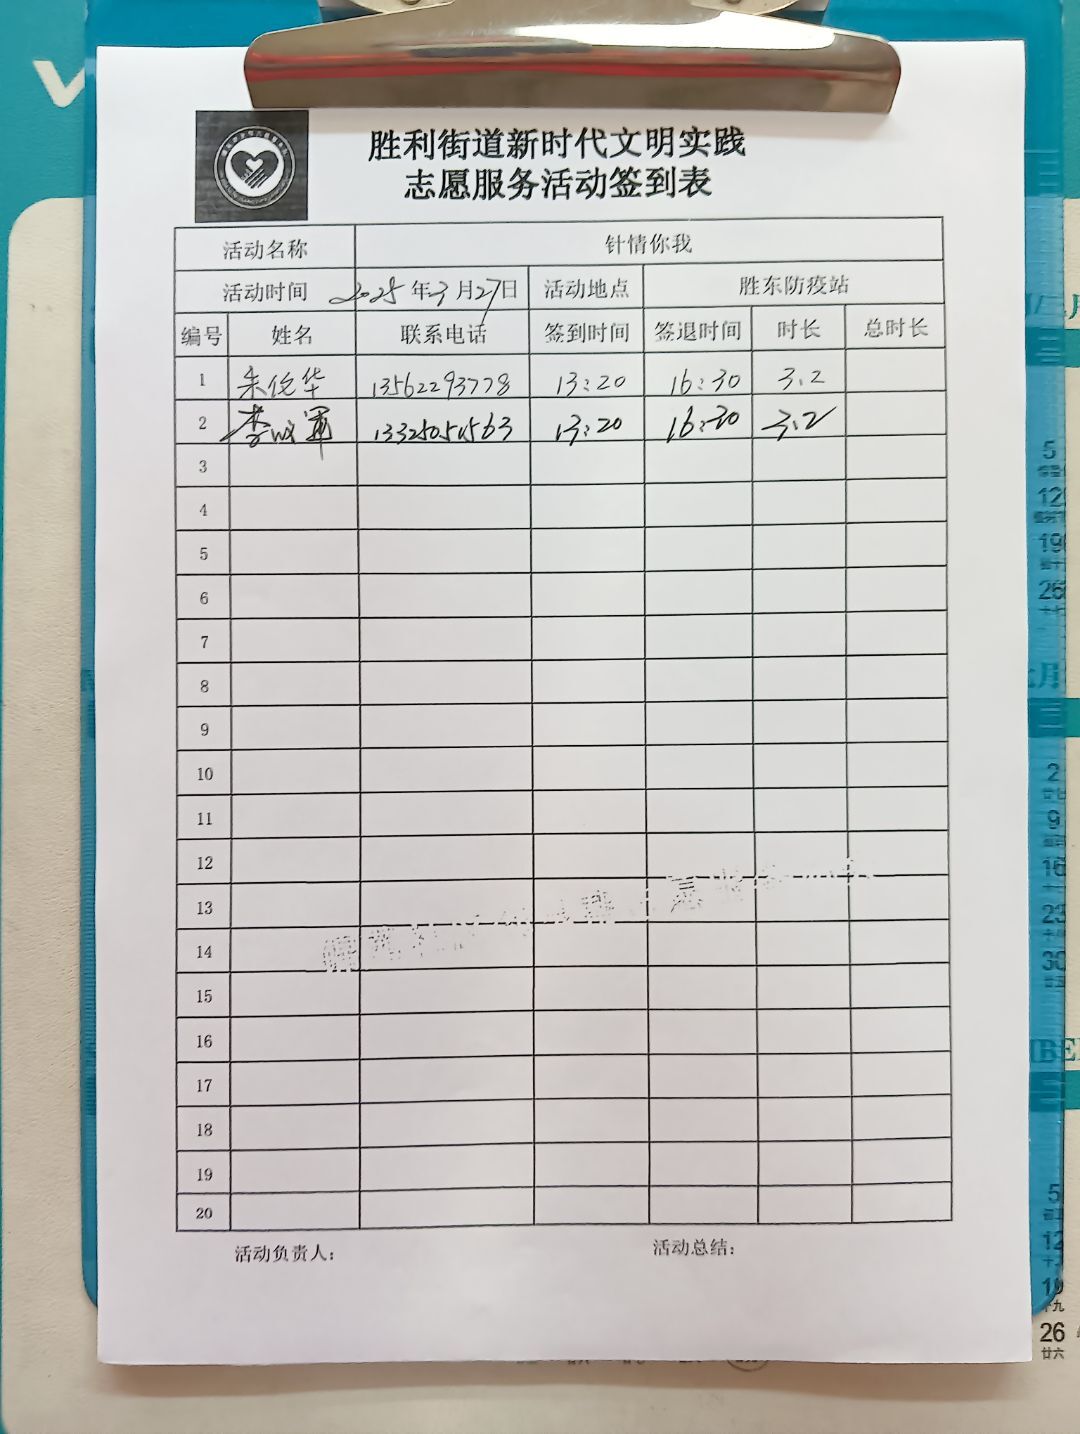 胜利街道新时代文明实践
志愿服务活动签到表
活动名称 针情你我
活动时间 2025年3月27日 活动地点 胜东防疫站
编号 姓名 联系电话 签到时间 签退时间 时长 总时长
1 朱伦华 13562293778 13:20 16:30 3.2
2 李 军 13325051563 13:20 16:30 3.2
3
4
5
6
7
8
9
10
11
12
13
14
15
16
17
18
19
20
活动负责人： 活动总结：
5
12
19
26
2
9
16
23
30
5
12
19
26
廿六